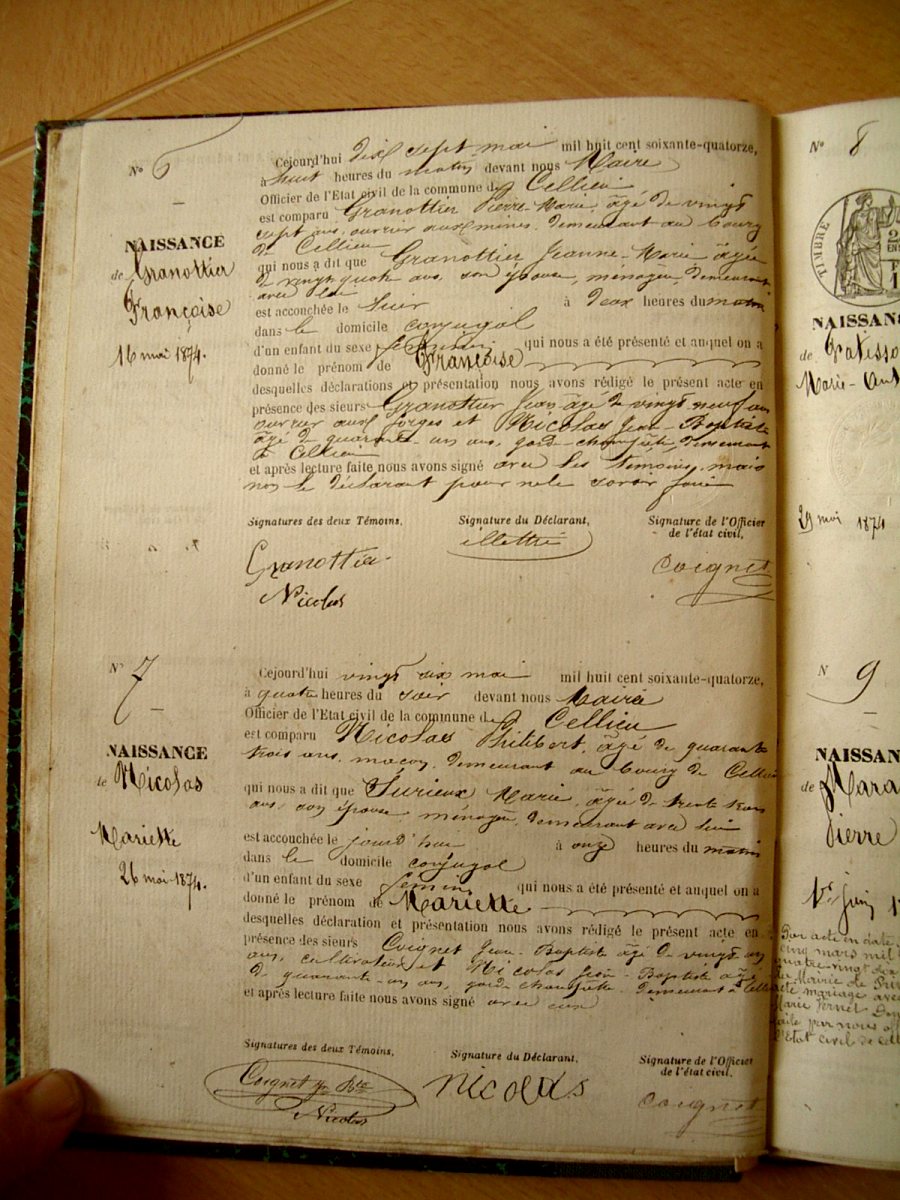 N° 6
NAISSANCE
de Granottier
Françoise
16 mai 1874.
Cejourd'hui dix sept mai mil huit cent soixante-quatorze,
à huit heures du matin devant nous Maire
Officier de l'Etat civil de la commune de Cellieu
est comparu Granottier Pierre-Marie, âgé de vingt
sept ans, ouvrier aux mines, demeurant au bourg
de Cellieu
qui nous a dit que Granottier Jeanne-Marie âgée
de vingt quatre ans, son épouse, ménagère, demeurant
avec lui
est accouchée le hier à deux heures du matin
dans le domicile conjugal
d'un enfant du sexe féminin qui nous a été présenté et auquel on a
donné le prénom de Françoise
desquelles déclarations et présentation nous avons rédigé le présent acte en
présence des sieurs Granottier Jean âgé de vingt neuf ans
ouvrier aux forges et Nicolas Jean-Baptiste
âgé de quarante un ans, garde-champêtre, demeurant
à Cellieu
et après lecture faite nous avons signé avec les témoins, mais
non le déclarant pour ne le savoir faire
Signatures des deux Témoins, Signature du Déclarant, Signature de l'Officier
de l'état civil,
Granottier illettré Coignet
Nicolas
N° 7
NAISSANCE
de Nicolas
Mariette
26 mai 1874.
Cejourd'hui vingt six mai mil huit cent soixante-quatorze,
à quatre heures du soir devant nous Maire
Officier de l'Etat civil de la commune de Cellieu
est comparu Nicolas Philibert, âgé de quarante
trois ans, maçon, demeurant au bourg de Cellieu
qui nous a dit que Surieux Marie, âgée de trente trois
ans, son épouse, ménagère, demeurant avec lui
est accouchée le jourd'hui à onze heures du matin
dans le domicile conjugal
d'un enfant du sexe féminin qui nous a été présenté et auquel on a
donné le prénom de Mariette
desquelles déclaration et présentation nous avons rédigé le présent acte en
présence des sieurs Coignet Jean-Baptiste âgé de vingt un
ans, cultivateur et Nicolas Jean-Baptiste âgé
de quarante-un ans, garde champêtre, demeurant à Cellieu
et après lecture faite nous avons signé avec eux
Signatures des deux Témoins, Signature du Déclarant, Signature de l'Officier
de l'état civil,
Coignet Jn Bte Nicolas Coignet
Nicolas
N° 8
TIMBRE
NAISSAN
de
Marie-
29 mai 1874
N 9
NAISSAN
de Mara
Pierre
1er Juin 1
Par acte en date
cinq mars mil
quatre vingt dix
Mairie de
mariage avec
Marie
par nous
l'Etat civil de Cell